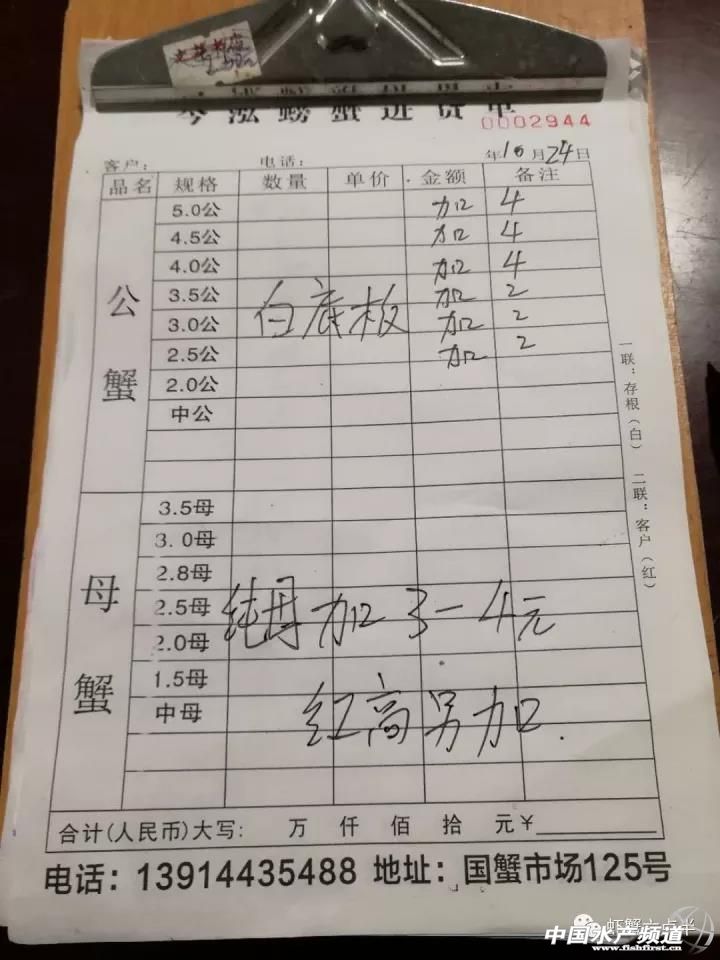 螃蟹进货单
0002944
客户: 电话: 年10月24日
品名 规格 数量 单价 金额 备注
公蟹
5.0公 加 4
4.5公 加 4
4.0公 加 4
3.5公 加 2
3.0公 加 2
2.5公 加 2
白底板
2.0公
中公
母蟹
3.5母
3.0母
2.8母
2.5母
纯母加3-4元
2.0母
1.5母
中母
红高另加.
合计(人民币)大写: 万 仟 佰 拾 元¥
电话: 13914435488 地址: 国蟹市场125号
一联:存根(白) 二联:客户(红)
虾蟹六点半
中国水产频道
www.fishfirst.cn